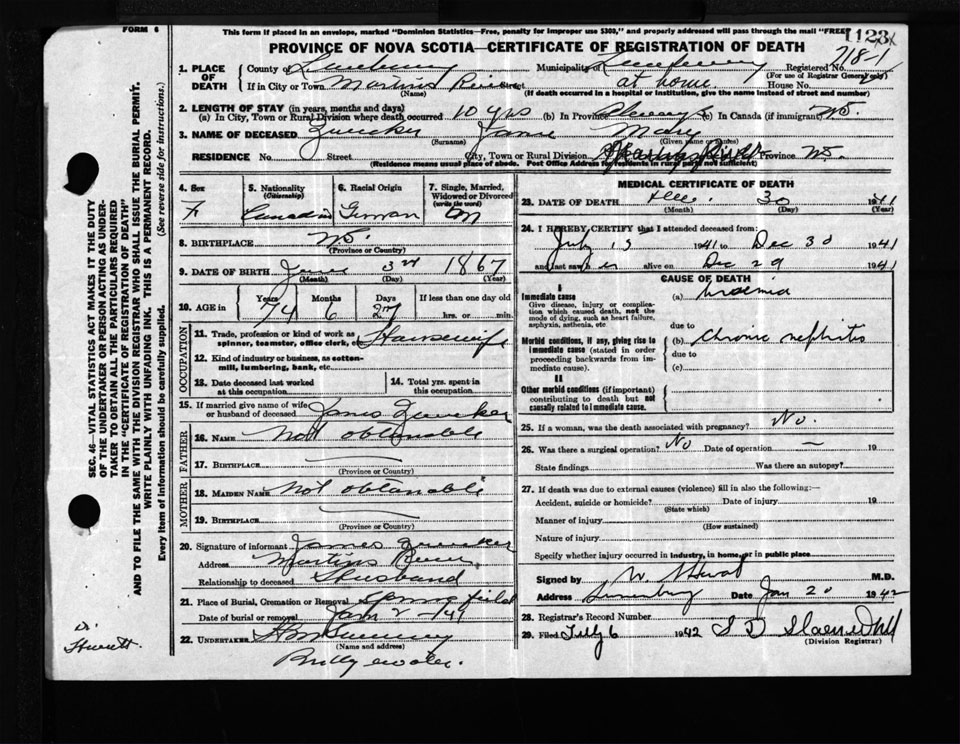 FORM 6
This form if placed in an envelope, marked "Dominion Statistics—Free, penalty for improper use $300," and properly addressed will pass through the mail "FREE"
PROVINCE OF NOVA SCOTIA—CERTIFICATE OF REGISTRATION OF DEATH
1. PLACE OF DEATH
County of Lunenburg Municipality of Lunenburg Registered No. 718-1
(For use of Registrar General only)
If in City or Town Martins River at home House No.
(Name) (If death occurred in a hospital or institution, give the name instead of street and number)
2. LENGTH OF STAY (in years, months and days)
(a) In City, Town or Rural Division where death occurred 10 yrs (b) In Province always (c) In Canada (if immigrant) NS.
3. NAME OF DECEASED Zwicker Mary
(Surname) (Given name or Names)
RESIDENCE No. Street City, Town or Rural Division Province NS.
(Residence means usual place of abode. Post Office Address for residents in rural parts not sufficient)
4. Sex F
5. Nationality (Citizenship) Canadian
6. Racial Origin German
7. Single, Married, Widowed or Divorced (write the word) M
8. BIRTHPLACE NS.
(Province or Country)
9. DATE OF BIRTH June 3rd 1867
(Month) (Day) (Year)
10. AGE in Years 74 Months 6 Days 27 If less than one day old
hrs. or min.
OCCUPATION
11. Trade, profession or kind of work as spinner, teamster, office clerk, etc. Housewife
12. Kind of industry or business, as cotton-mill, lumbering, bank, etc.
13. Date deceased last worked at this occupation
14. Total yrs. spent in this occupation
15. If married give name of wife or husband of deceased James Zwicker
FATHER
16. NAME Not obtanable
17. BIRTHPLACE
(Province or Country)
MOTHER
18. MAIDEN NAME Not obtanable
19. BIRTHPLACE
(Province or Country)
20. Signature of informant James Zwicker
Address Martins River
Relationship to deceased Husband
21. Place of Burial, Cremation or Removal Springfield
Date of burial or removal Jan 2 1941
22. UNDERTAKER
(Name and address)
Bridgewater.
MEDICAL CERTIFICATE OF DEATH
23. DATE OF DEATH Dec. 30 1941
(Month) (Day) (Year)
24. I HEREBY CERTIFY that I attended deceased from:
July 15 1941 to Dec 30 1941
and last saw her alive on Dec 29 1941
CAUSE OF DEATH
I
Immediate cause
Give disease, injury or complication which caused death, not the mode of dying, such as heart failure, asphyxia, asthenia, etc
(a) Uraemia
due to
Morbid conditions, if any, giving rise to immediate cause (stated in order proceeding backwards from immediate cause).
(b) Chronic nephritis
due to
(c)
II
Other morbid conditions (if important) contributing to death but not causally related to immediate cause.
25. If a woman, was the death associated with pregnancy? No.
26. Was there a surgical operation? No Date of operation — 19
State findings Was there an autopsy?
27. If death was due to external causes (violence) fill in also the following:—
Accident, suicide or homicide? Date of injury 19
(State which)
Manner of injury
(How sustained)
Nature of injury
Specify whether injury occurred in industry, in home, or in public place
Signed by M.D.
Address Lunenburg Date Jan 20 1942
28. Registrar's Record Number
29. Filed 1942
(Division Registrar)
SEC. 46—VITAL STATISTICS ACT MAKES IT THE DUTY
OF THE UNDERTAKER OR PERSON ACTING AS UNDER-
TAKER TO OBTAIN ALL THE PARTICULARS REQUIRED
IN THE "CERTIFICATE OF REGISTRATION OF DEATH"
AND TO FILE THE SAME WITH THE DIVISION REGISTRAR WHO SHALL ISSUE THE BURIAL PERMIT.
WRITE PLAINLY WITH UNFADING INK. THIS IS A PERMANENT RECORD.
Every item of information should be carefully supplied. (See reverse side for instructions.)